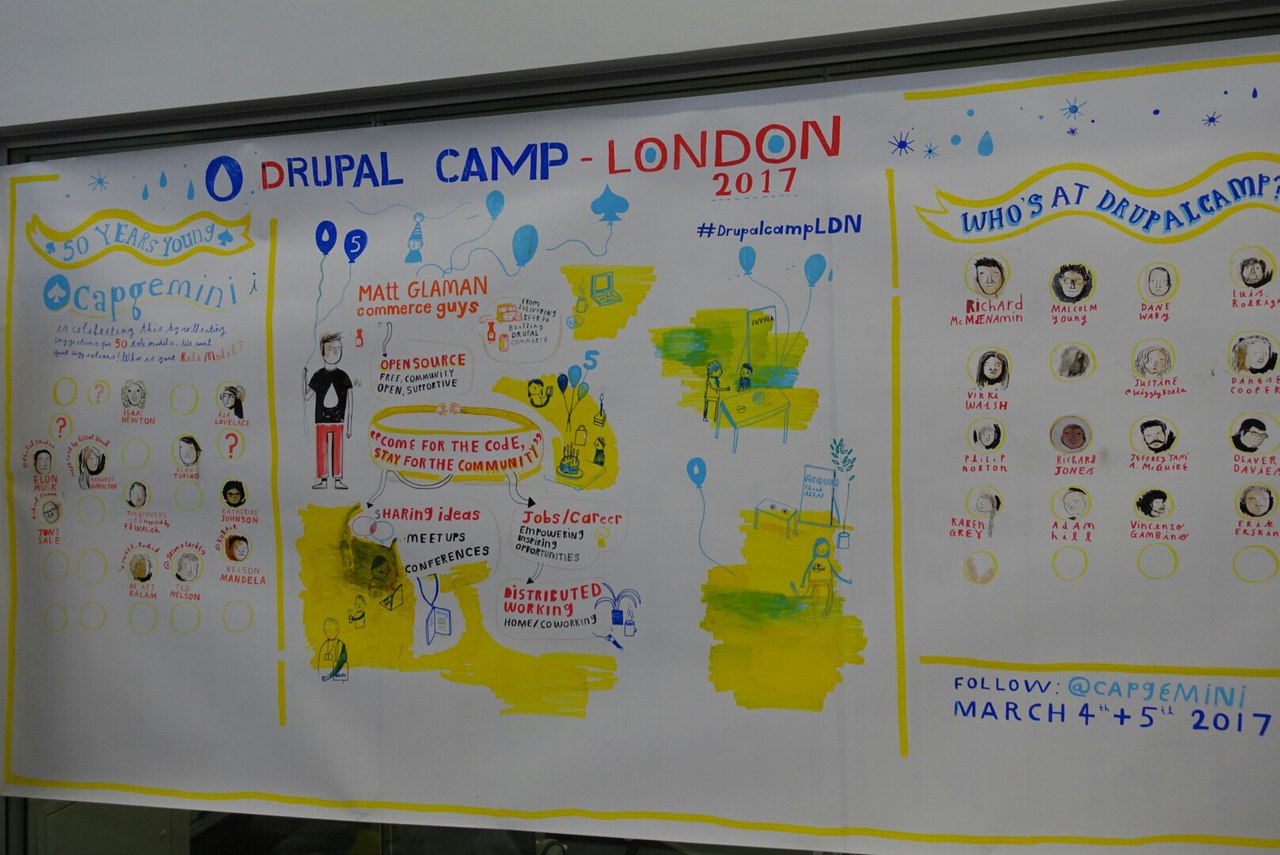 DRUPAL CAMP - LONDON
2017
#DrupalcampLDN
50 YEARS YOUNG
Capgemini
is celebrating this by collecting
suggestions for 50 Role models. We want
your suggestions! Who is your Role Model?
?
ISAAC
NEWTON
ADA
LOVELACE
?
?
ELON
MUSK
MARGARET
HAMILTON
ALAN
TURING
KATHERINE
JOHNSON
TONY
SALE
KALAM
TED
NELSON
NELSON
MANDELA
5
MATT GLAMAN
commerce guys
FROM
DELIVERING
BEER TO
Building
DRUPAL
COMMERCE
OPEN SOURCE
FREE, COMMUNITY
OPEN, SUPPORTIVE
5
"COME FOR THE CODE,
STAY FOR THE COMMUNITY"
SHARING ideas
MEETUPS
CONFERENCES
Jobs/Career
EMPOWERING
INSPIRING
OPPORTUNITIES
DISTRIBUTED
WORKING
HOME/COWORKING
WHO'S AT DRUPALCAMP?
RICHARD
MCMENAMIN
MALCOLM
YOUNG
DANE
LUIS
VIKKI
WALSH
JUSTINE
COOPER
PHILIP
NORTON
RICHARD
JONES
A. MCGUIRE
OLIVER
DAVIES
KAREN
GREY
ADAM
HILL
VINCENZO
GAMBINO
ERIK
ERSKIN
FOLLOW: @CAPGEMINI
MARCH 4th + 5th 2017